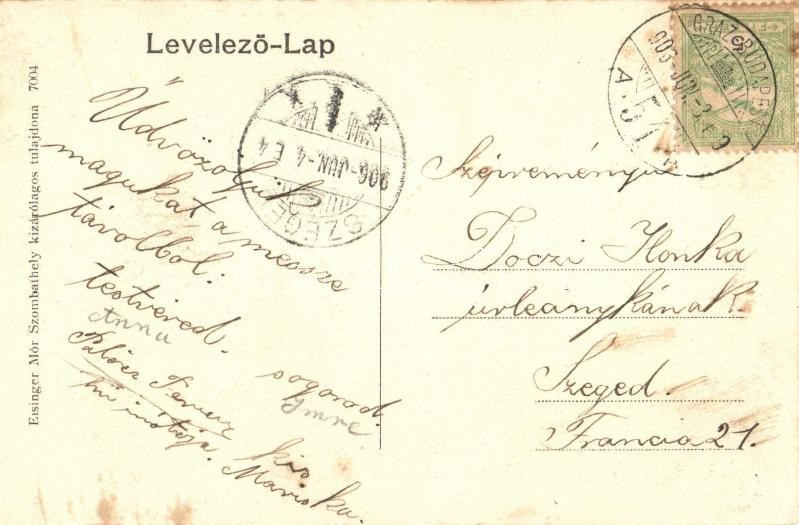 Levelező-Lap
Eisinger Mór Szombathely kizárólagos tulajdona 7004
Üdvözoljuk
magukat a messze
távolból:
testvéred. sogorod.
Anna Imre
Palócz Ferenc kis
Mariska.
SZEGED
906-JUN.-4.E4
GRAZ-BUDAPEST
906-JUN.-3
A.51
Szépreményű
Doczi Ilonka
úrleánykának
Szeged.
Francia 21.